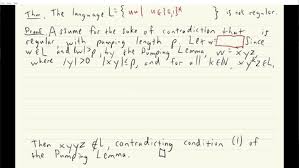 Thm. The language L = { uu | u ∈ {0,1}* } is not regular.
Proof. Assume for the sake of contradiction that L is
regular with pumping length p. Let w = Since
w ∈ L and |w| > p, by the Pumping Lemma, w = xyz
where |y| > 0, |xy| ≤ p, and for all k ∈ N, xyᵏz ∈ L.
Then xyyz ∉ L, contradicting condition (1) of
the Pumping Lemma. □